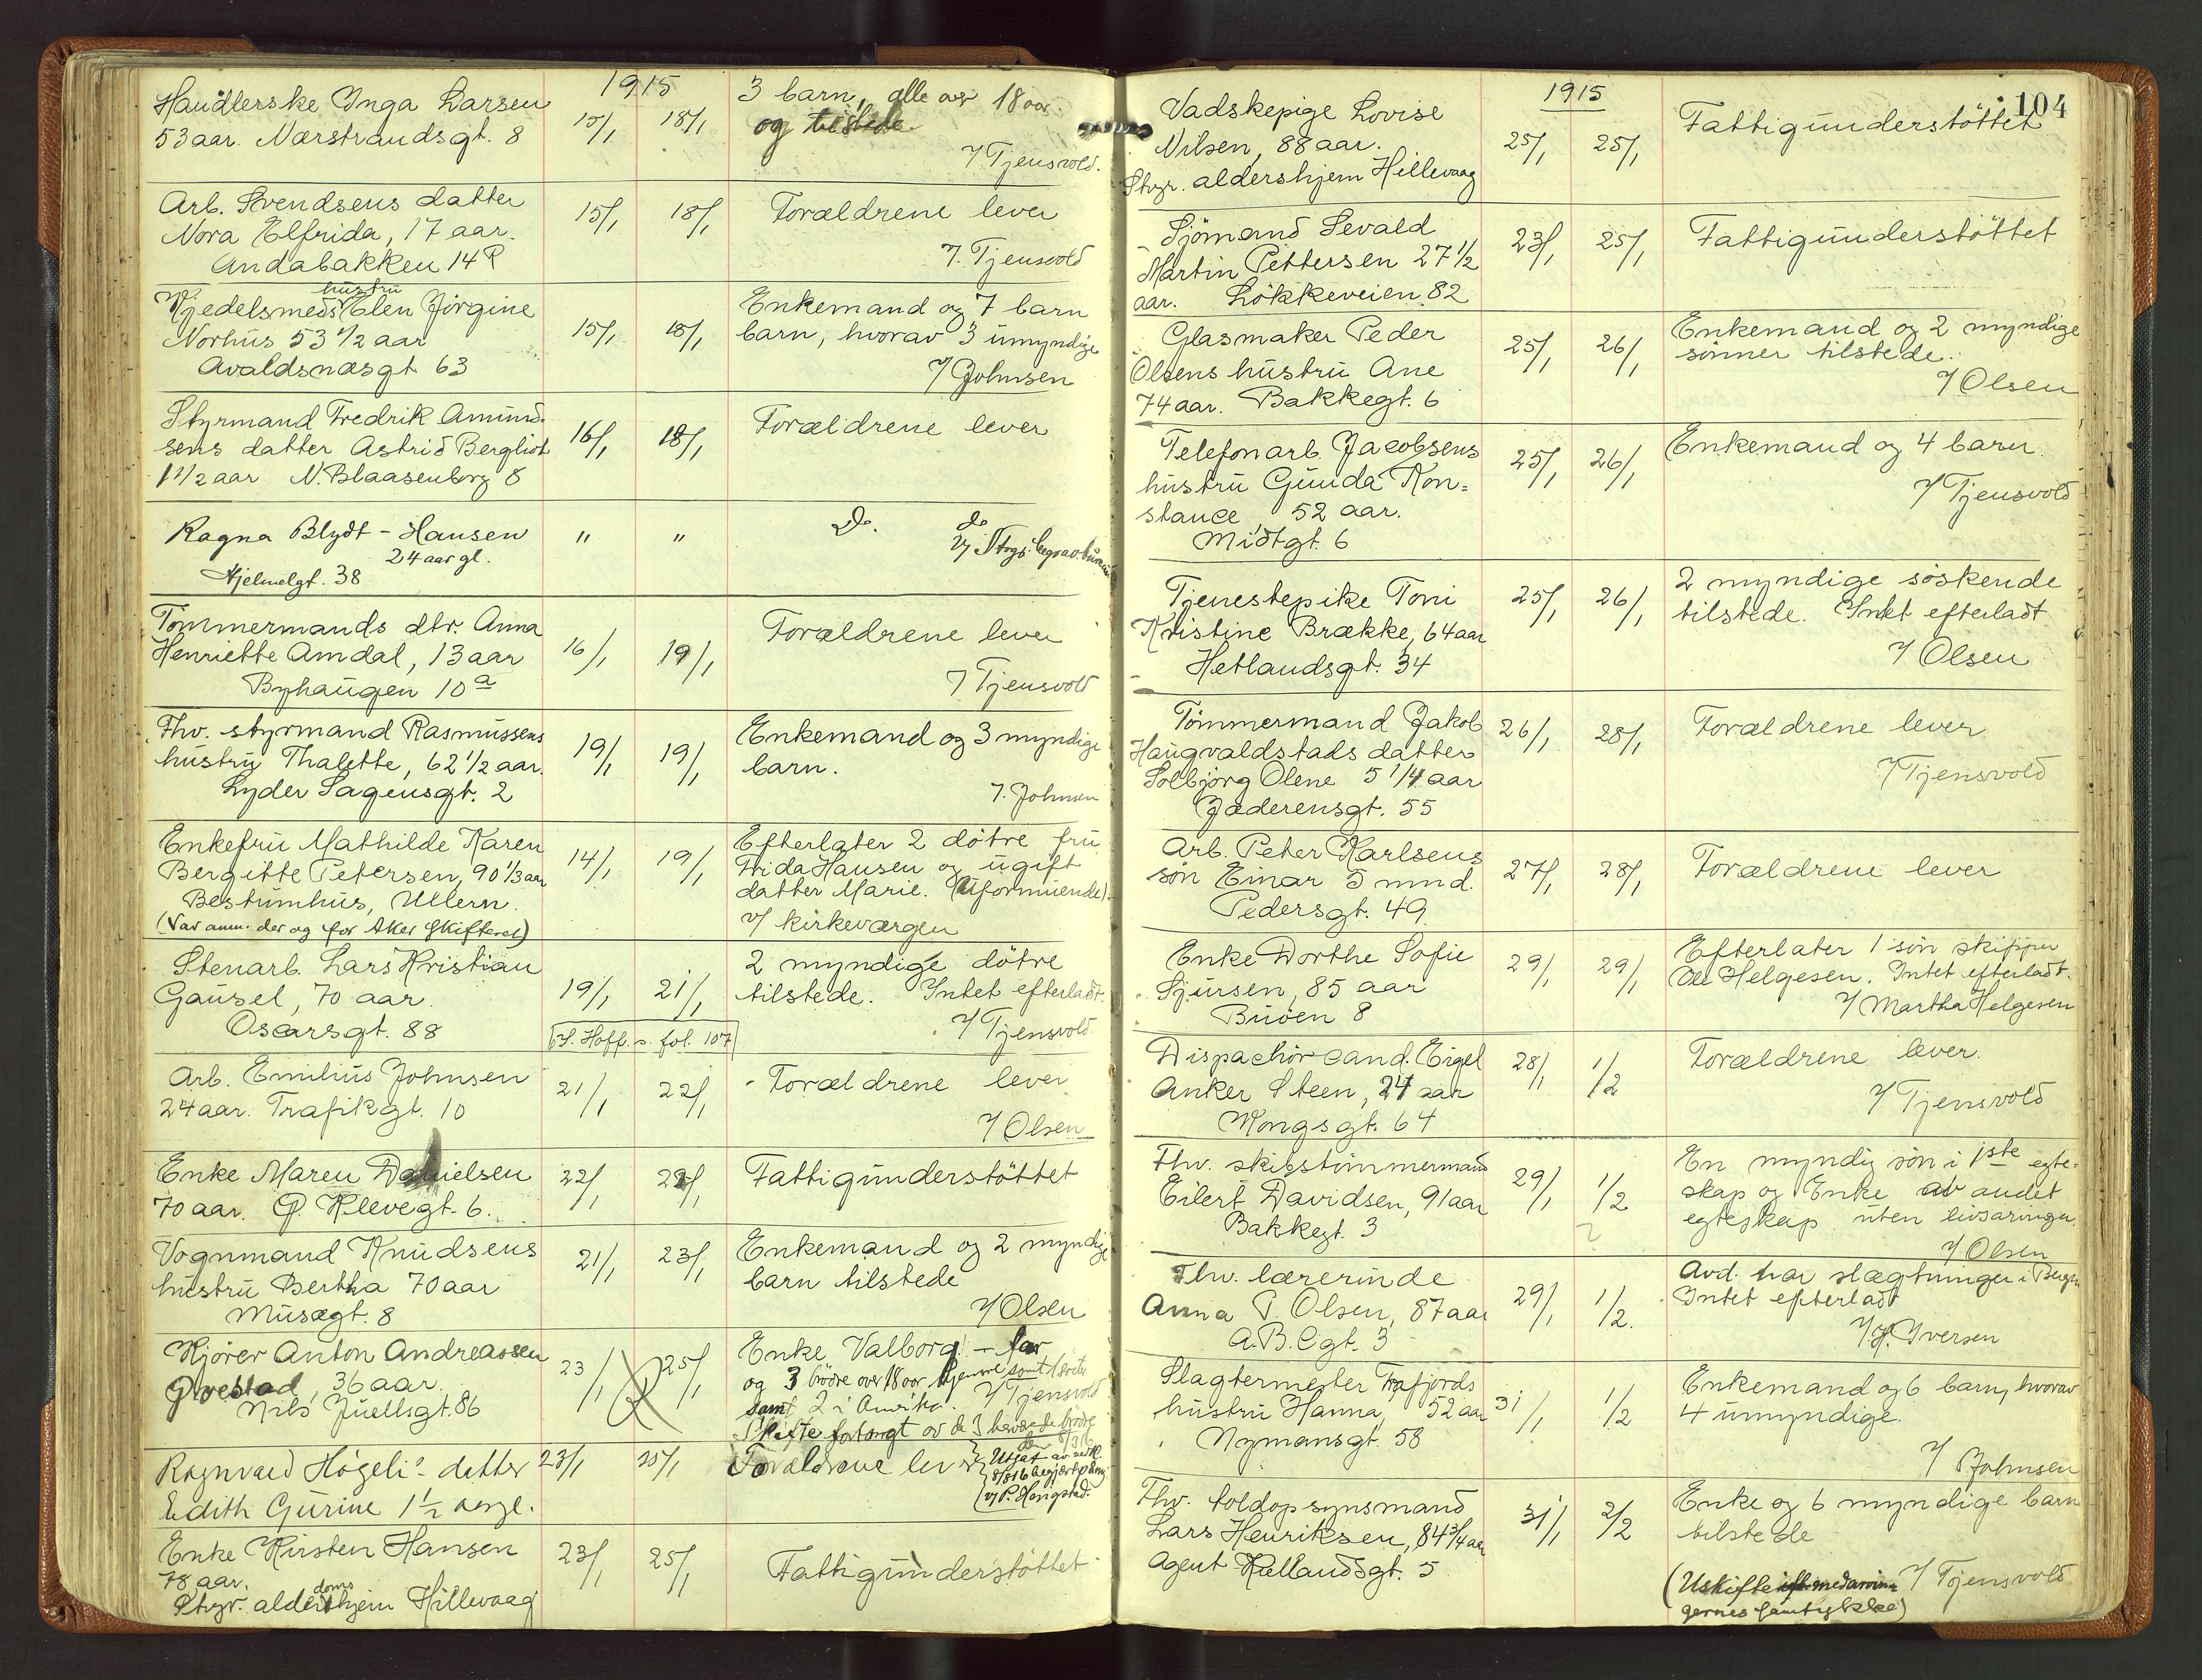 1915
Handlerske Inga Larsen
53 aar. Nærstrandsgt. 8
15/1 18/1
3 barn, alle over 18 aar.
og tilstede
V/ Tjensvold.
Arb. Svendsens datter
Nora Elfrida, 17 aar.
Andabakken 14
15/1 18/1
Forældrene lever
V. Tjensvold
hustru
Gjedelsmeds Elen Jörgine
Norhus 53 1/2 aar
Avaldsnæsgt. 63
15/1 18/1
Enkemand og 7 barn
barn, hvorav 3 umyndige
V/ Johnsen
Styrmand Fredrik Amund-
sens datter Astrid Bergliot
1 1/2 aar N. Blaasenborg 8
16/1 18/1
Forældrene lever
Ragna Blydt - Hansen
24 aar gl.
Hjelmelgt. 38
" "
Do. do
V/ Stvgr. begrav.bureau
Tömmermands dtr. Anna
Henriette Amdal, 13 aar
Byhaugen 10 a
16/1 19/1
Forældrene lever
V/ Tjensvold
Fhv. styrmand Rasmussens
hustru Thalette, 62 1/2 aar.
Lyder Sagensgt. 2
19/1 19/1
Enkemand og 3 myndige
barn.
V. Johnsen
Enkefru Mathilde Karen
Bergitte Petersen, 90 1/3 aar
Bestumhus, Ullern.
(Var anm. der og for Aker Skifteret)
14/1 19/1
Efterlater 2 dötre fru
Frida Hansen og ugift
datter Marie. (Uformuende).
V/ kirkeværgen
Stenarb. Lars Kristian
Gausel, 70 aar.
Oscarsgt. 88
19/1 21/1
S. Hoff. s. fol. 107
2 myndige dötre
tilstede. Intet efterladt.
V/ Tjensvold
Arb. Emilius Johnsen
24 aar. Trafikgt. 10
21/1 22/1
Forældrene lever
V/ Olsen
Enke Maren Danielsen
70 aar. P. Klevegt. 6.
22/1 22/1
Fattigunderstöttet
Vognmand Knudsens
hustru Bertha 70 aar
Musægt. 8
21/1 23/1
Enkemand og 2 myndige
barn tilstede
V/ Olsen
Kjörer Anton Andreassen
Grestad, 36 aar.
Nils Juellsgt. 86
23/1 25/1
Enke Valborg - far
og 3 brödre over 18 aar hjemme samt
samt 2 i Amerika. V/ Tjensvold
Skifte forlangt av de 3 hævdede brödre
Ragnvald Högeli's datter
Edith Gurine 1 1/2 aar gl.
23/1 25/1
Forældrene lever
Enke Kirsten Hansen
78 aar.
doms
Stvgr. alderhjem Hillevaag
23/1 25/1
Fattigunderstöttet
1915
104
Vadskepige Lovise
Nilsen, 88 aar.
Stvgr. aldershjem Hillevaag
25/1 25/1
Fattigunderstöttet
Sjömand Sevald
Martin Pettersen 27 1/2
aar. Lökkeveien 82
23/1 25/1
Fattigunderstöttet
Glasmaker Peder
Olsens hustru Ane
74 aar. Bakkegt. 6
25/1 26/1
Enkemand og 2 myndige
sönner tilstede.
V/ Olsen
Telefonarb. Jacobsens
hustru Gunda Kon=
stance 52 aar.
Midtgt. 6
25/1 26/1
Enkemand og 4 barn
V/ Tjensvold
Tjenestepike Toni
Kristine Brække, 64 aar
Hetlandsgt. 34
25/1 26/1
2 myndige söskende
tilstede. Intet efterladt
V/ Olsen
Tömmermand Jakob
Haugvaldstads datter
Solbjörg Olene 5 1/4 aar
Jæderensgt. 55
26/1 28/1
Forældrene lever
V/ Tjensvold
Arb. Peter Karlsens
sön Einar 5 mnd.
Pedersgt. 49
27/1 28/1
Forældrene lever
Enke Dorthe Sofie
Sjursen, 85 aar
Buöen 8
29/1 29/1
Efterlater 1 sön skipper
Ole Helgesen. Intet efterladt.
V/ Martha Helgesen
Dispachör cand. Eigel
Anker Steen, 24 aar
Kongsgt. 64
28/1 1/2
Forældrene lever.
V/ Tjensvold
Fhv. skibstömmermand
Eilert Davidsen, 91 aar
Bakkegt. 3
29/1 1/2
En myndig sön i 1ste egte-
skap og Enke av andet
egteskap uten livsarvinger.
V/ Olsen
Fhv. lærerinde
Anna P. Olsen, 87 aar
A.B.C gt. 3
29/1 1/2.
Avd. har slægtninger i Bergen
Intet efterladt
V/ H. Iversen
Slagtermester Trafjords
hustru Hanna, 52 aar
Nymansgt. 58
31/1 1/2
Enkemand og 6 barn, hvorav
4 umyndige.
V/ Johnsen
Fhv. toldopsynsmand
Lars Henriksen, 84 3/4 aar
Agent Kiellandsgt. 5
31/1 2/2
Enke og 6 myndige barn
tilstede
V/ Tjensvold
(Uskifte med arvin
gernes samtykke)